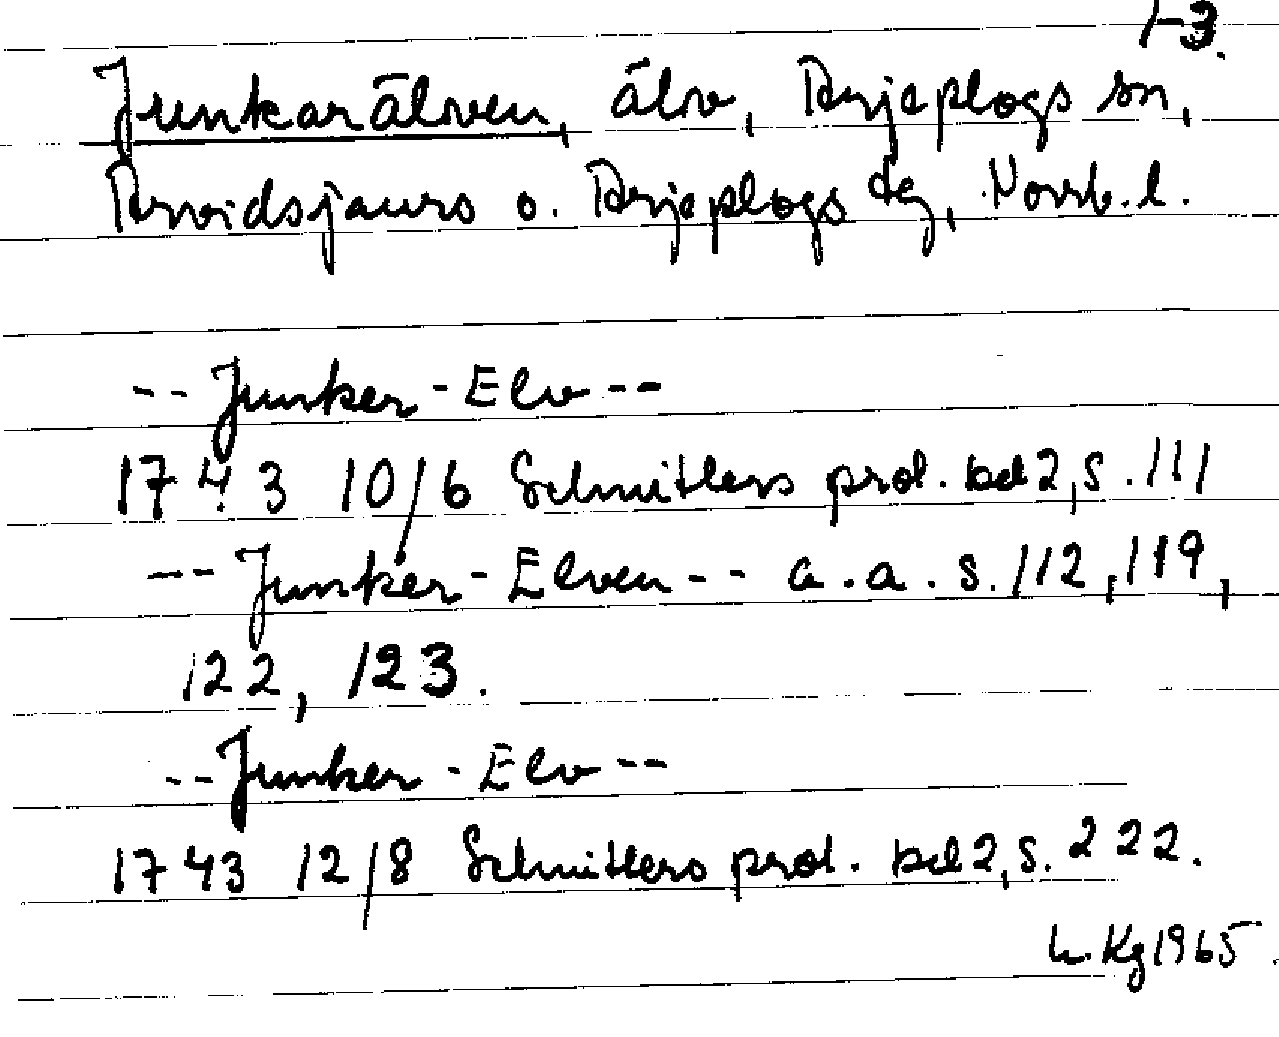 1-3.
Junkarälven, älv, Arjeplogs sn,
Arvidsjaurs o. Arjeplogs tg, Norrb. l.
-- Junker - Elv --
1743 10/6 Schnitlers prot. bd 2, s. 111
-- Junker - Elven -- a. a. s. 112, 119,
122, 123.
-- Junker - Elv --
1743 12/8 Schnitlers prot. bd 2, s. 222.
Kg 1965.